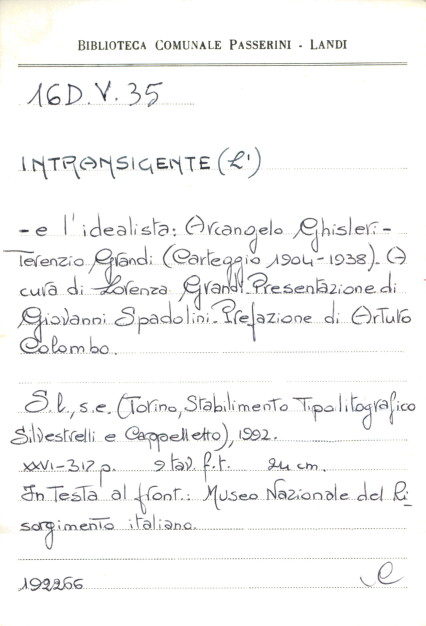 BIBLIOTECA COMUNALE PASSERINI - LANDI
16D.V.35
INTRANSIGENTE (L')
- e l'idealista: Arcangelo Ghisleri -
Terenzio Grandi (Carteggio 1904-1938). A
cura di Lorenza Grandi. Presentazione di
Giovanni Spadolini. Prefazione di Arturo
Colombo.
S.l., s.e. (Torino, Stabilimento Tipolitografico
Silvestrelli e Cappelletto), 1992.
XXVI-317 p. 9 tav. f.t. 24 cm.
In testa al front.: Museo Nazionale del Ri=
sorgimento italiano.
192266